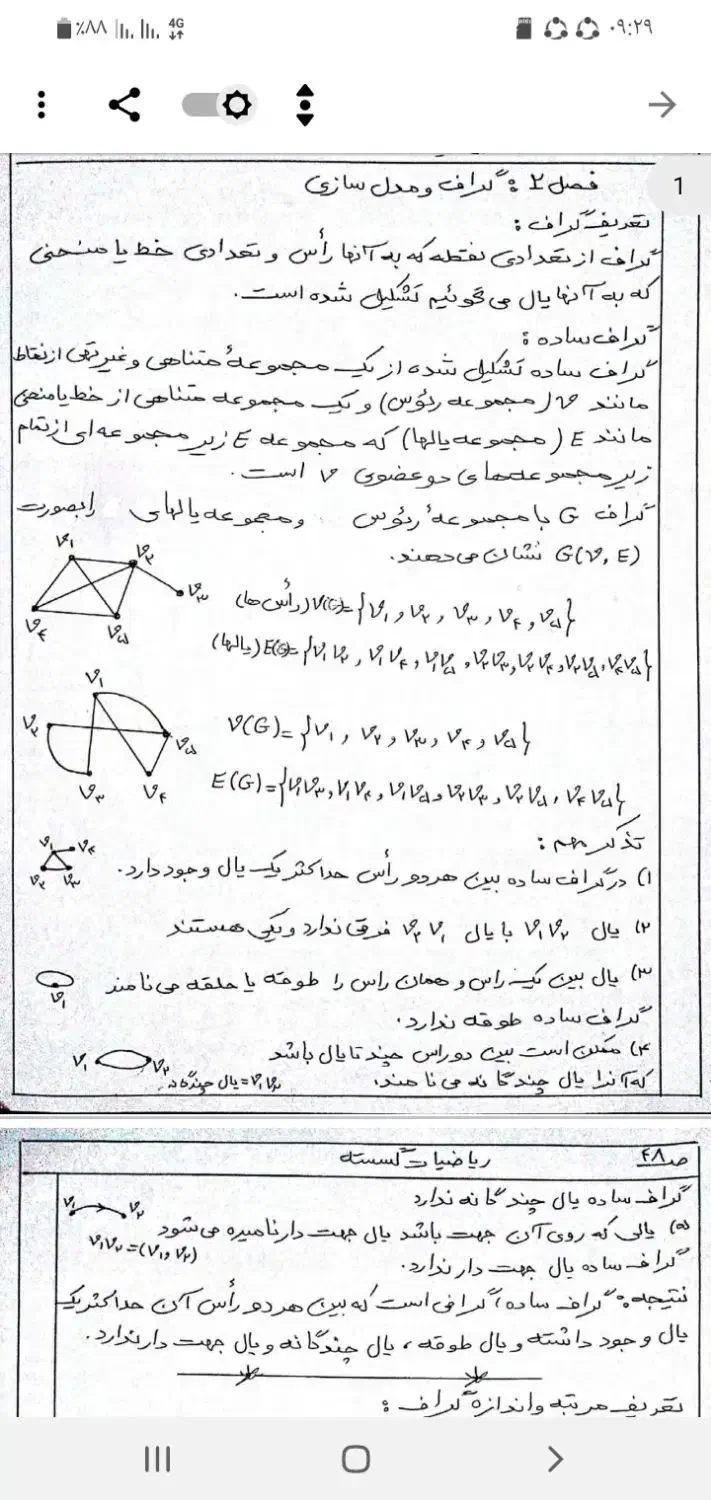 ٪۸۸ 4G ۰۹:۲۹
1
فصل ۲ : گراف و مدل سازی
تعریف گراف :
گراف از تعدادی نقطه که به آنها رأس و تعدادی خط یا منحنی
که به آنها یال می گوئیم تشکیل شده است.
گراف ساده :
گراف ساده تشکیل شده از یک مجموعهٔ متناهی و غیر تهی از نقاط
مانند V (مجموعه رئوس) و یک مجموعه متناهی از خط یا منحنی
مانند E (مجموعه یالها) که مجموعه E زیر مجموعه ای از تمام
زیر مجموعه های دو عضوی V است.
گراف G با مجموعهٔ رئوس و مجموعه یالهای را بصورت
G(V, E) نشان می دهند.
V۱ V۲ V۳ V۴ V۵
(رأس ها) V(G)={V۱ , V۲ , V۳ , V۴ , V۵}
(یالها) E(G)={V۱V۲ , V۱V۴ , V۱V۵ , V۲V۳ , V۲V۴ , V۲V۵ , V۴V۵}
V۱ V۲ V۵ V۳ V۴
V(G)={V۱ , V۲ , V۳ , V۴ , V۵}
E(G)={V۱V۳ , V۱V۴ , V۱V۵ , V۲V۳ , V۲V۵ , V۴V۵}
تذکر مهم :
۱) در گراف ساده بین هر دو رأس حداکثر یک یال وجود دارد.
V۱ V۴ V۲ V۳
۲) یال V۱V۲ با یال V۲V۱ فرقی ندارد و یکی هستند
۳) یال بین یک راس و همان راس را طوقه یا حلقه می نامند
V۱
گراف ساده طوقه ندارد.
۴) ممکن است بین دو راس چند تا یال باشد
V۱ V۲
که آنرا یال چند گانه می نامند،
V۱V۲ = یال چندگانه
ص۴۸ ریاضیات گسسته
گراف ساده یال چند گانه ندارد
V۱ V۲
۵) یالی که روی آن جهت باشد یال جهت دار نامیده می شود
V۱V۲ =(V۱, V۲)
گراف ساده یال جهت دار ندارد.
نتیجه : گراف ساده، گرافی است که بین هر دو رأس آن حداکثر یک
یال وجود داشته و یال طوقه ، یال چندگانه و یال جهت دار ندارد.
تعریف مرتبه و اندازه گراف :